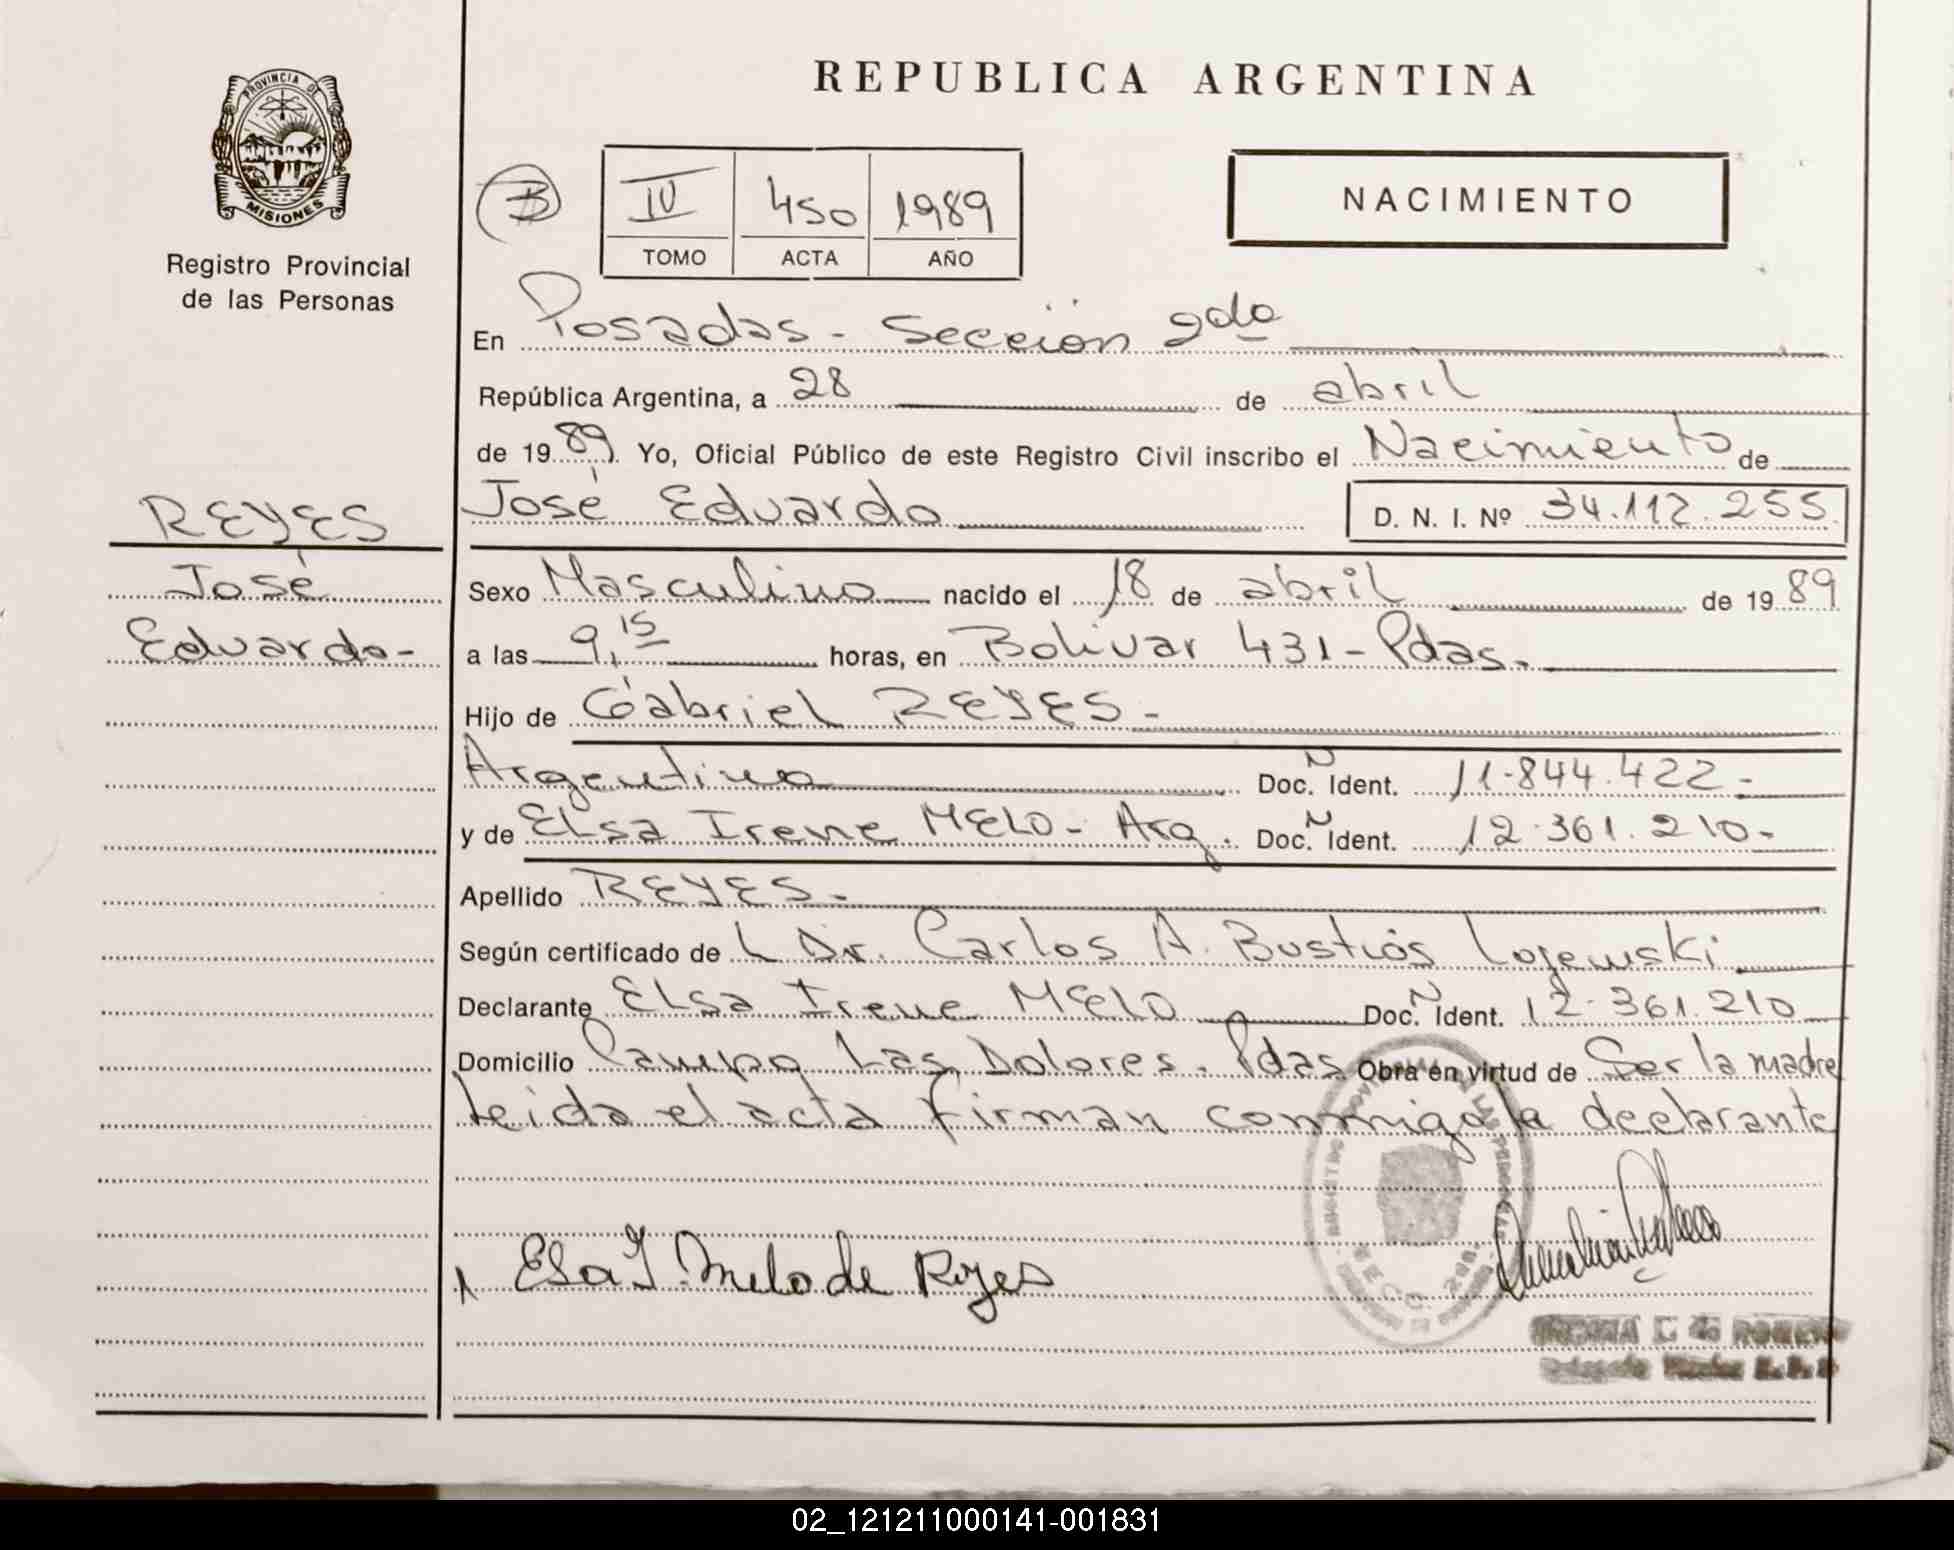 PROVINCIA DE
MISIONES
Registro Provincial
de las Personas
REPUBLICA ARGENTINA
B
IV 450 1989
TOMO ACTA AÑO
NACIMIENTO
En Posadas - Sección 2da
República Argentina, a 28 de abril
de 1989. Yo, Oficial Público de este Registro Civil inscribo el Nacimiento de
José Eduardo D. N. I. Nº 34.112.255.
REYES
José
Eduardo-
Sexo Masculino nacido el 18 de abril de 1989
a las 9,15 horas, en Bolivar 431 - Pdas.
Hijo de Gabriel REYES-
Argentino Doc. N Ident. 11.844.422-
y de Elsa Irene MELO - Arg. Doc. N Ident. 12.361.210-
Apellido REYES-
Según certificado de L Dr. Carlos A. Bustos Lojewski
Declarante Elsa Irene MELO Doc. N Ident. 12.361.210
Domicilio Campo Las Dolores. Pdas Obra en virtud de Ser la madre
Leida el acta firman conmigo la declarante
Elsa I. Melo de Reyes
SECC. 2da
02_121211000141-001831